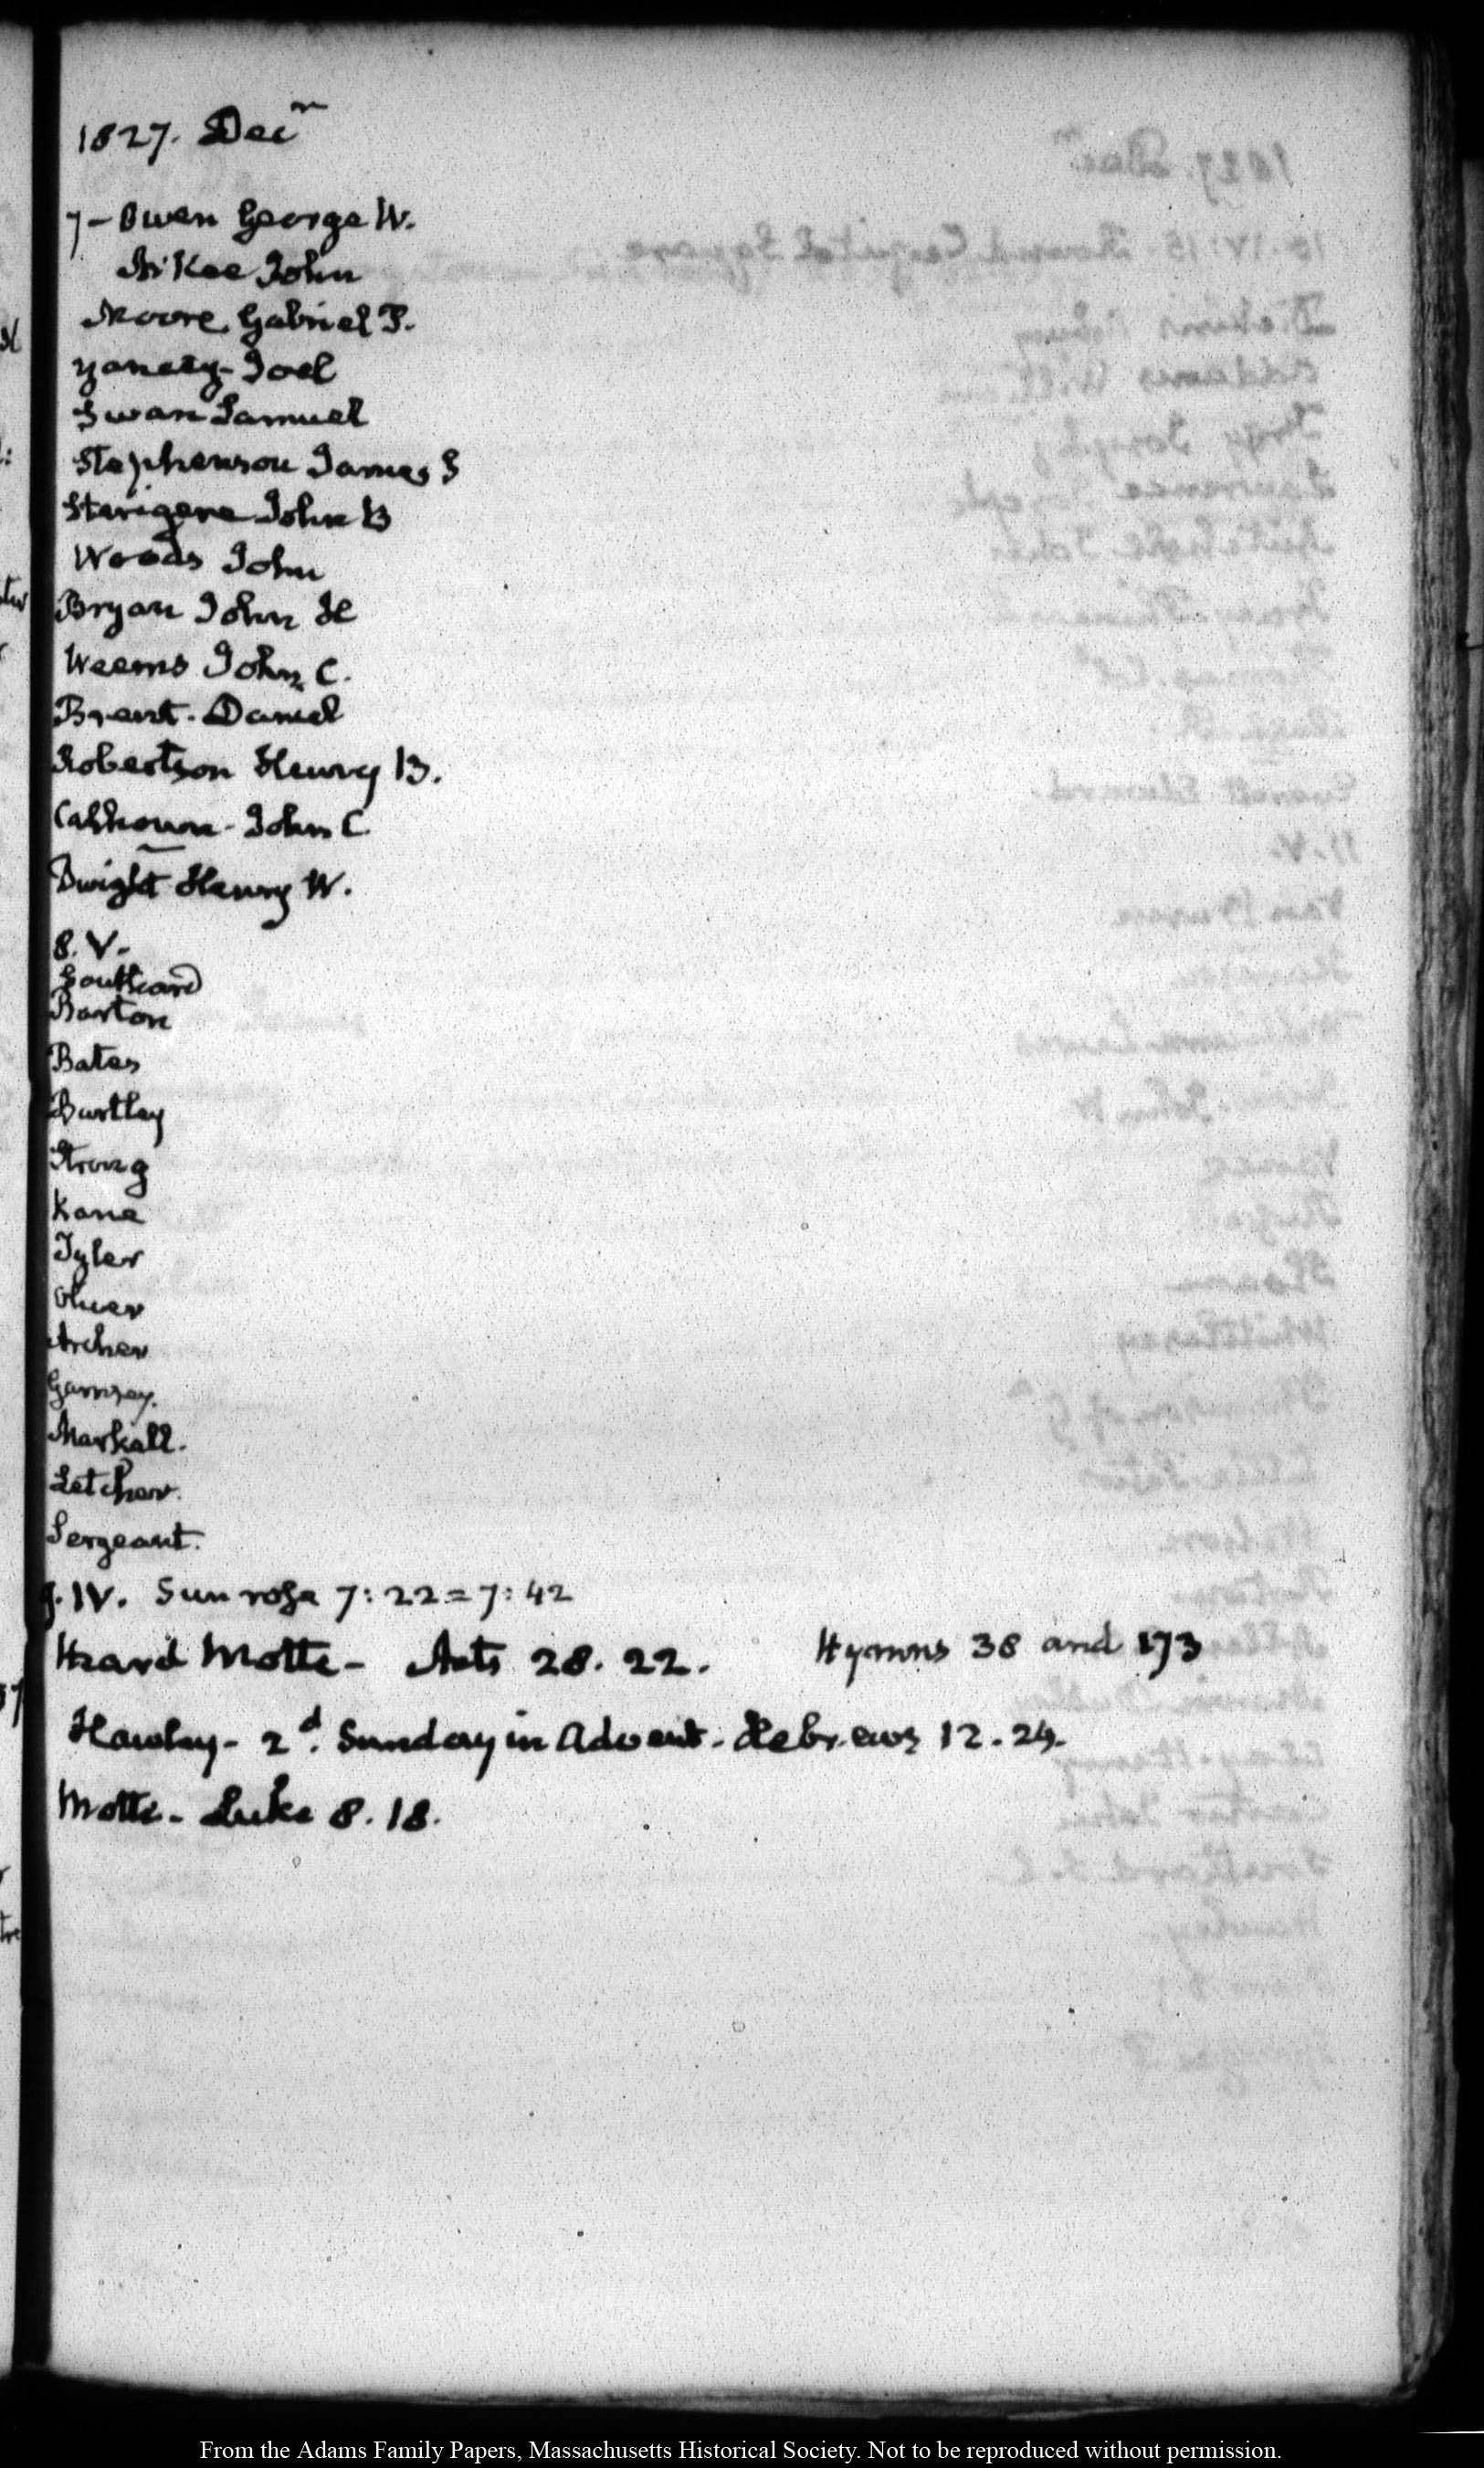 1827. Decr
7 - Owen George W.
McKee John
Moore Gabriel P.
Yancey - Joel
Swan Samuel
Stephenson James S
Sterigere John B
Woods John
Bryan John H
Weems John C.
Brent. Daniel
Robertson Henry B.
Calhoun - John C
Dwight Henry W.
8. V.
Southard
Barton
Bates
Bartley
Strong
Kane
Tyler
Oliver
Archer
Gurnsey.
Markall.
Letcher.
Sergeant.
9. IV. Sun rose 7:22 = 7:42
Heard Motte - Acts 28. 22. Hymns 38 and 173
Hawley - 2d. Sunday in Advent. Hebrews 12. 24.
Motte - Luke 8. 18.
From the Adams Family Papers, Massachusetts Historical Society. Not to be reproduced without permission.